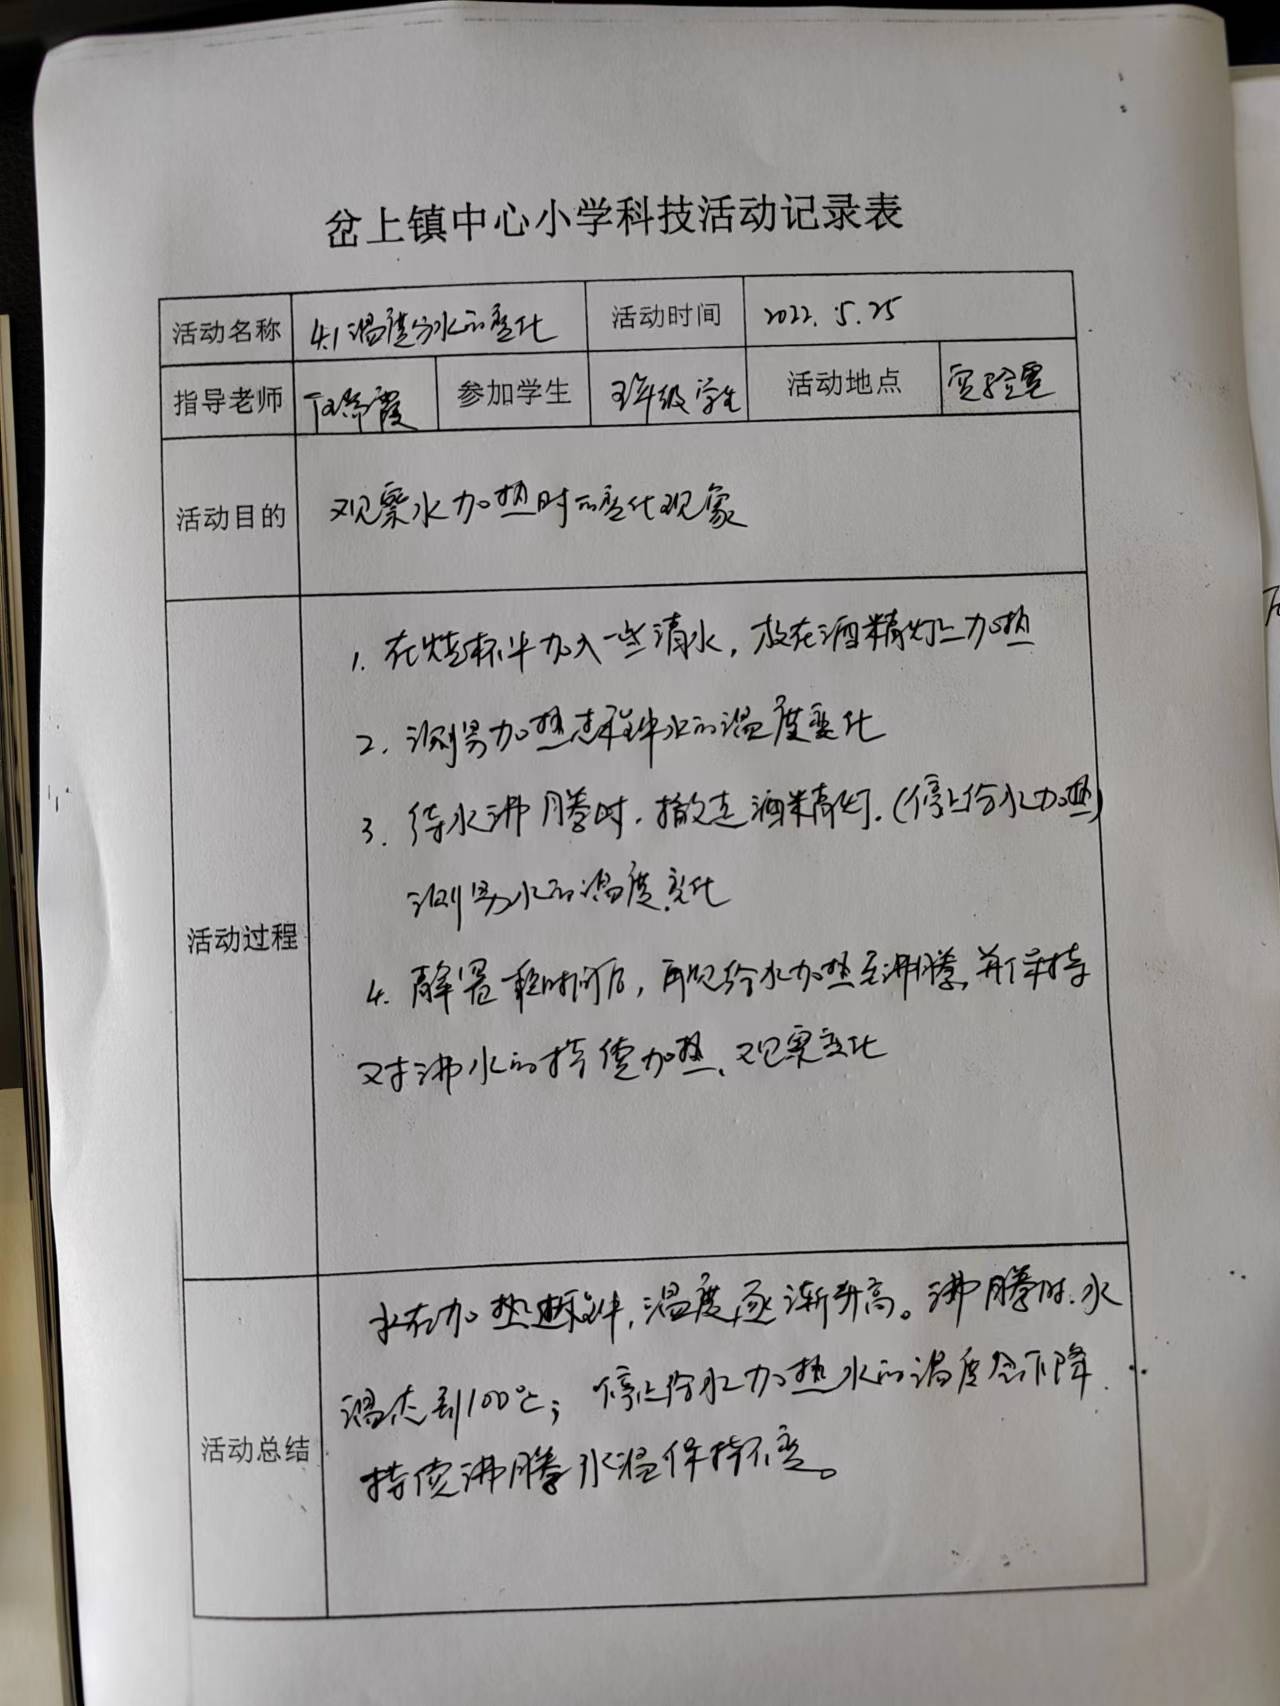 岔上镇中心小学科技活动记录表
活动名称 4.1 温度与水的变化 活动时间 2022.5.25
指导老师 霞 参加学生 五年级学生 活动地点 实验室
活动目的 观察水加热时的变化现象
活动过程
1. 在烧杯中加入一些清水，放在酒精灯上加热
2. 测另加热过程中水的温度变化
3. 待水沸腾时，撤走酒精灯.(停止给水加热)
测另水的温度变化
4. 静置一段时间后，再次给水加热至沸腾，并保持
对沸水的持续加热、观察变化
活动总结
水在加热过程中，温度逐渐升高。沸腾时，水
温达到100℃；停止给水加热水的温度会下降.
持续沸腾水温保持不变。